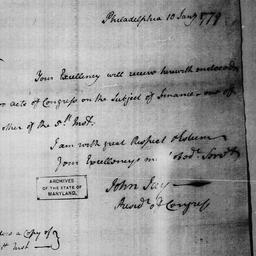 Philadelphia 10 Jany 1779
Your Excellency will receive herewith enclosed
acts of Congress on the Subject of Finance one of
other of the 5th Inst.
I am with great Respect & Esteem
Your Excellencys m. Obed. Servt
John Jay
Presidt. of Congress
ARCHIVES
OF THE STATE OF
MARYLAND.
a Copy of
Inst